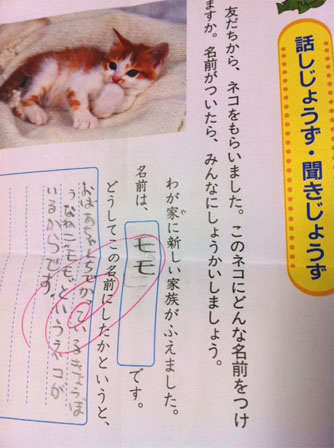 話しじょうず・聞きじょうず
友だちから、ネコをもらいました。このネコにどんな名前をつけ
ますか。名前がついたら、みんなにしょうかいしましょう。
わが家に新しい家族がふえました。
や
名前は、モモです。
どうしてこの名前にしたかというと、
おばあちゃんちでかっているきょうぼ
うなねこモモというネコが
いるからです。